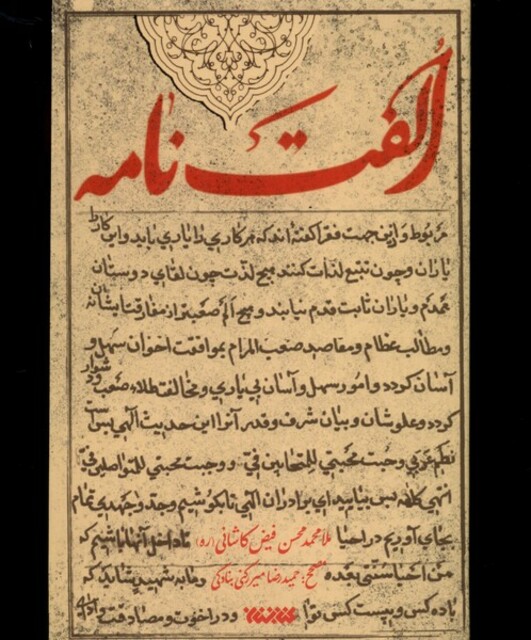 الفت نامه
مربوط و ازین جهت فقرا کفته اند که هر کاری را یاری باید و این کار را
یاران و چون تتبع لذات کنند هیچ لذت چون لقای دوستان
همدم و یاران ثابت قدم نیابند و هیچ الم صعبتر از مفارقت ایشان نه
و مطالب عظام و مقاصد صعب المرام بموافقت اخوان سهل و
آسان کردد و امور سهل و آسان بی یاری و مخالفت صعب و دشوار
کردد و علو شان و بیان شرف و قدر آنرا این حدیث الهی بس است
وجبت محبتی للمتحابین فی و وجبت محبتی للمتواصلین فی
انتهی کلامه پس بیایید ای برادران الهی تا بکوشیم وجد و جهدی تمام
بجای آوریم در احیا
ملا محمد محسن فیض کاشانی (ره)
تا داخل آنها باشیم که
من احیا سنتی بعده
مصحح: حمیدرضا میرکنی بنادکی
و مانه شهید شاید که
یاده کس و بیست کس توا
و در اخوت و مصادقت و